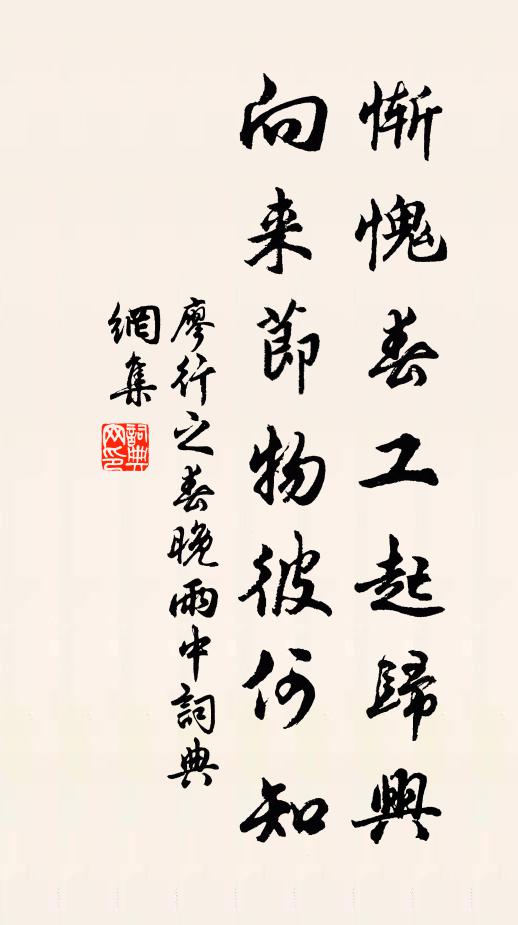 惭愧春工起歸興
向来節物彼何知
廖行之春晚雨中詞典
網集
詞典網印